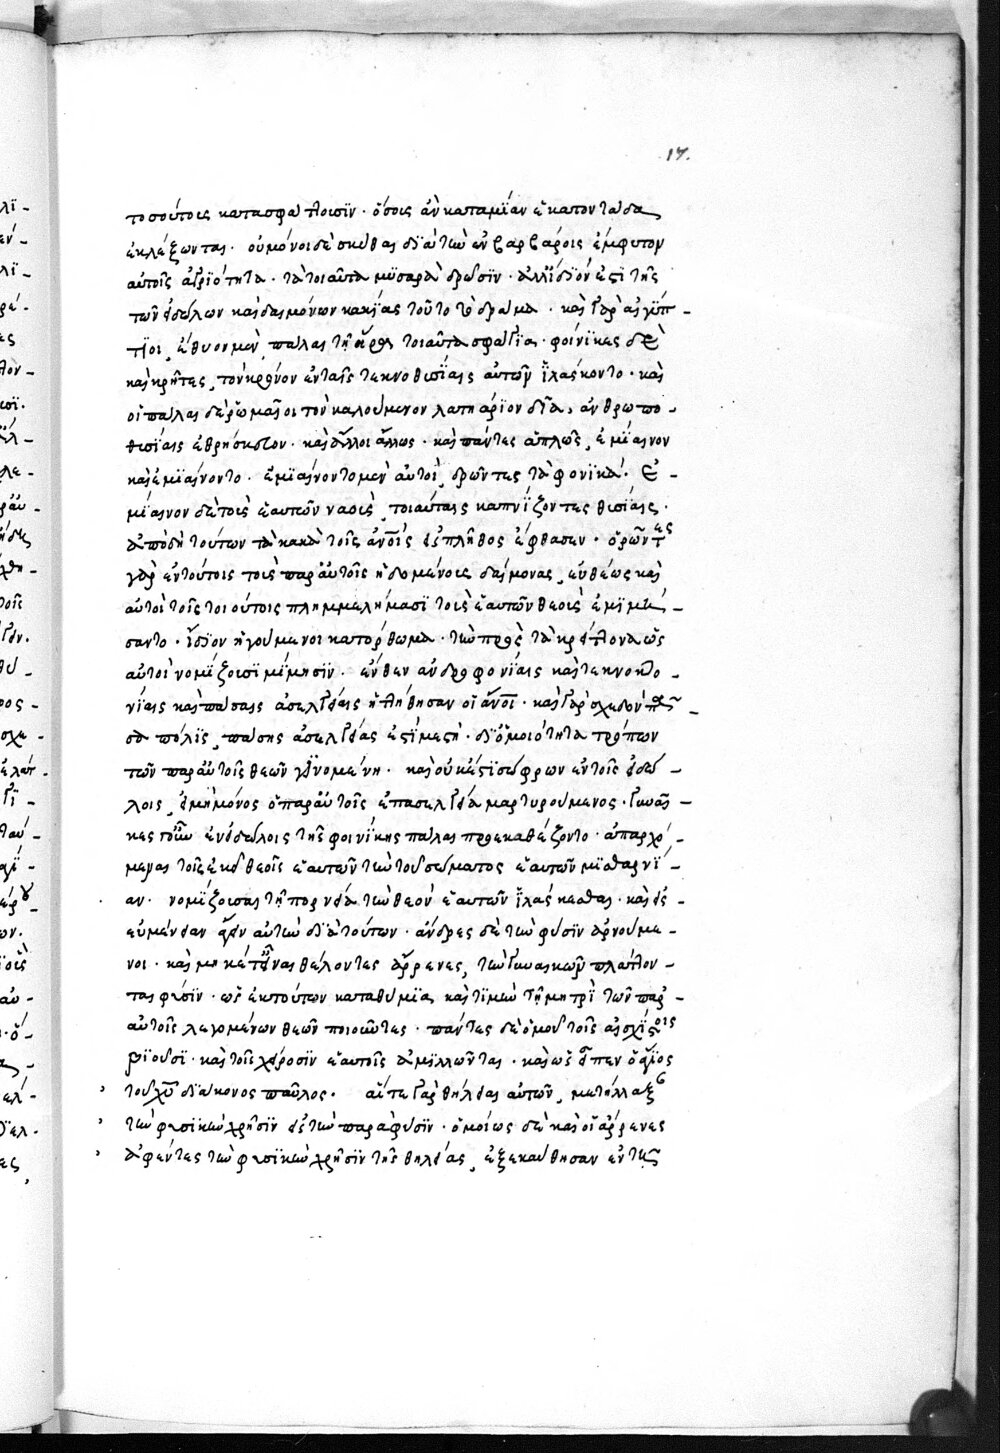 17.
τοσούτοις κατασφάττουσιν · ὅσοις ἂν καταμίαν ἑκατοντάδα
ἐκλέξωνται · οὐ μόνοι δὲ σκύθαι διὰ τὴν ἐν βαρβάροις ἔμφυτον
αὐτοῖς ἀγριότητα · τὰ τοιαῦτα μυσαρὰ δρῶσιν · ἀλλ' ἴδιόν ἐστι τῆς
τῶν εἰδώλων καὶ δαιμόνων κακίας τοῦτο τὸ δρᾶμα · καὶ γὰρ αἰγύπ-
τιοι, ἔθυον μὲν πάλαι τῇ ἥρᾳ τοιαῦτα σφάγια · φοίνικες δὲ
καὶ κρῆτες, τὸν κρόνον ἐν ταῖς τεκνοθυσίαις αὐτῶν ἱλάσκοντο · καὶ
οἱ πάλαι δὲ ῥωμαῖοι τὸν καλούμενον λατηάριον δία, ἀνθρωπο-
θυσίαις ἐθρήσκευον · καὶ ἄλλοι ἄλλως · καὶ πάντες ἁπλῶς, ἐμίαινον
καὶ ἐμιαίνοντο · ἐμιαίνοντο μὲν αὐτοὶ, δρῶντες τὰ φονικά · ἐ-
μίαινον δὲ τοὺς ἑαυτῶν ναοὺς, τοιαύταις καπνίζοντες θυσίαις ·
ἀπὸ δὴ τούτων τὰ κακὰ τοῖς ἀνοῖς εἰς πλῆθος ἔφθασεν · ὁρῶντες
γὰρ ἐν τούτοις τοὺς παρ' αὐτοῖς ἡδομένους δαίμονας, εὐθέως καὶ
αὐτοὶ τοῖς τοιούτοις πλημμελήμασι τοὺς ἑαυτῶν θεοὺς ἐμιμή-
σαντο · ἴδιον ἡγούμενοι κατόρθωμα · τὴν πρὸς τὰ κρείττονα ὡς
αὐτοὶ νομίζουσι μίμησιν · ἔνθεν ἀνδροφονίαις καὶ τεκνοκτο-
νίαις καὶ πάσαις ἀσελγείαις ἡττήθησαν οἱ ἄνοι · καὶ γὰρ σχεδὸν πᾶ-
σα πόλις, πάσης ἀσελγείας ἐστὶ μεστὴ · δι' ὁμοιότητα τρόπων
τῶν παρ' αὐτοῖς θεῶν γινομένη · καὶ οὐκ ἔστι σώφρων ἐν τοῖς εἰδώ-
λοις, εἰ μὴ μόνος ὁ παρ' αὐτοῖς ἐπ' ἀσελγείᾳ μαρτυρούμενος · γυναῖ-
κες γοῦν ἐν εἰδώλοις τῆς φοινίκης πάλαι προεκαθέζοντο · ἀπαρχό-
μεναι τοῖς ἐκεῖ θεοῖς ἑαυτῶν τὴν τοῦ σώματος ἑαυτῶν μισθαρνί-
αν · νομίζουσαι τῇ πορνείᾳ τὴν θεὸν ἑαυτῶν ἱλάσκεσθαι · καὶ εἰς
εὐμένειαν ἄγειν αὐτὴν διὰ τούτων · ἄνδρες δὲ τὴν φύσιν ἀρνούμε-
νοι · καὶ μηκέτ' εἶναι θέλοντες ἄρρενες, τὴν γυναικῶν πλάττον-
ται φύσιν · ὡς ἐκ τούτων καταθύμια καὶ τιμὴν τῇ μητρὶ τῶν παρ'
αὐτοῖς λεγομένων θεῶν ποιοῦντες · πάντες δὲ ὁμοῦ τοῖς αἰσχίστοις
βιοῦσι · καὶ τοῖς χείροσιν ἑαυτοῖς ἁμιλλῶνται · καὶ ὡς εἶπεν ὁ ἅγιος
τοῦ χῦ διάκονος παῦλος · αἵ τε γὰρ θήλειαι αὐτῶν, μετήλλαξαν
τὴν φυσικὴν χρῆσιν εἰς τὴν παρὰ φύσιν · ὁμοίως δὲ καὶ οἱ ἄρρενες
ἀφέντες τὴν φυσικὴν χρῆσιν τῆς θηλείας, ἐξεκαύθησαν ἐν τῇ